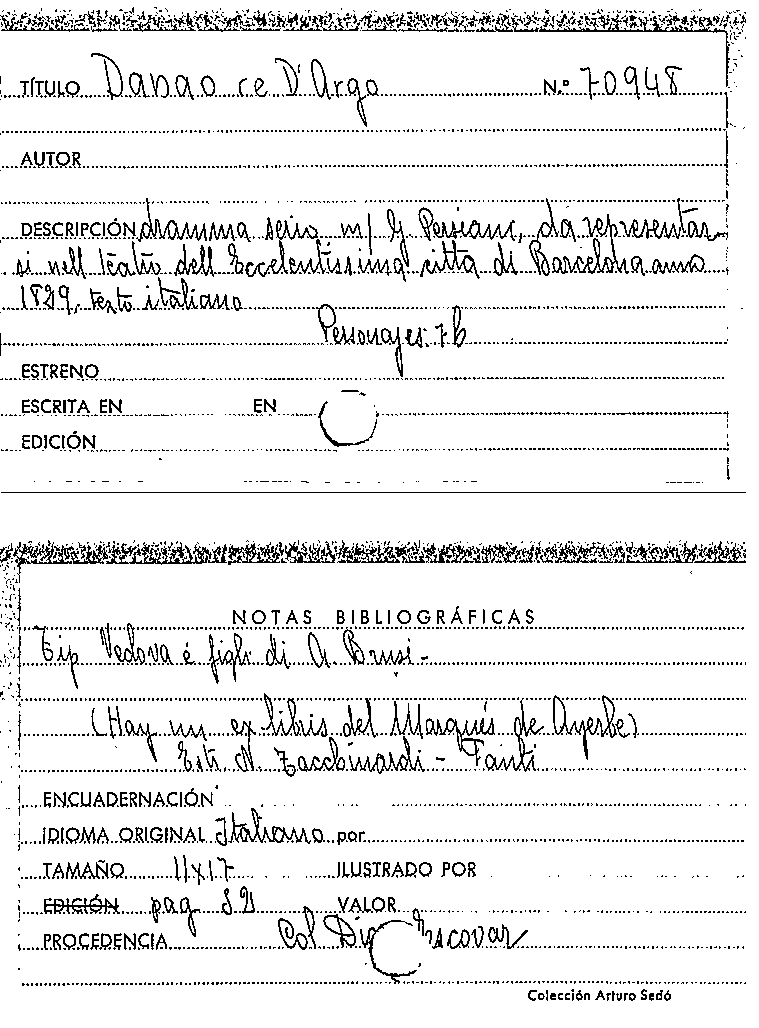 TÍTULO Danao re D'Argo N.º 70948
AUTOR
DESCRIPCIÓN dramma serio m/ G Persiani, da representar
si nell teatro dell Eccelentissima citta di Barcelona anno
1829, texto italiano
Personajes. 7 b
ESTRENO
ESCRITA EN EN
EDICIÓN
NOTAS BIBLIOGRÁFICAS
Tip Vedova é figli di A. Brusi -
(Hay un ex-libris del Marqués de Ayerbe)
Estr. N. - Fanti
ENCUADERNACIÓN
IDIOMA ORIGINAL Italiano por
TAMAÑO 11x17 ILUSTRADO POR
EDICIÓN pag VALOR
PROCEDENCIA Col Escovar
Colección Arturo Sedó